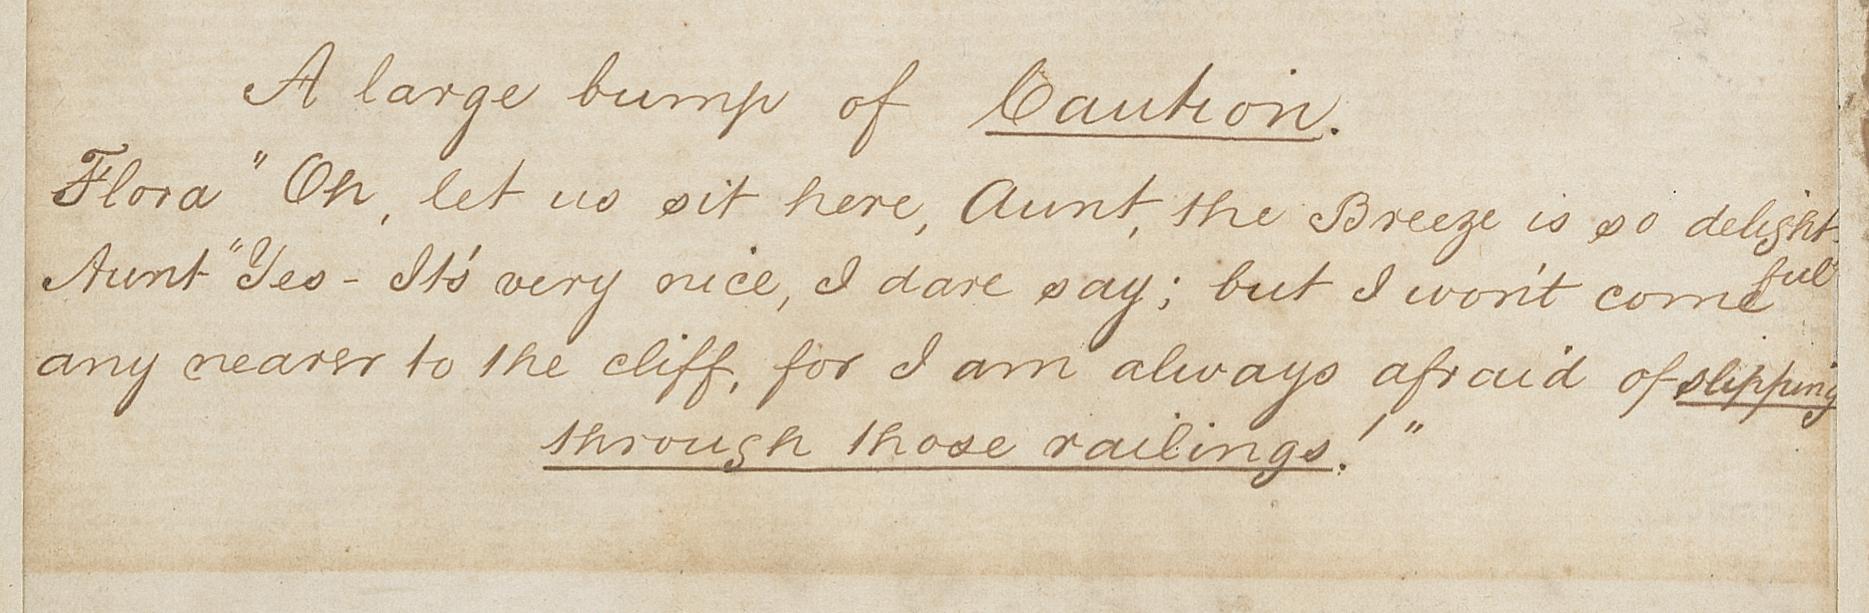 A large bump of Caution.
Flora "Oh, let us sit here, Aunt, the Breeze is so delight-
ful"
Aunt "Yes - It's very nice, I dare say; but I won't come
any nearer to the cliff, for I am always afraid of slipping
through those railings!"